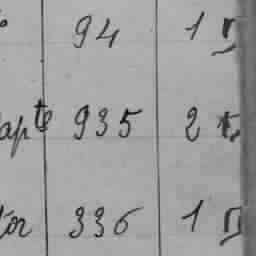 94 1
apte 935 2
tor 336 1